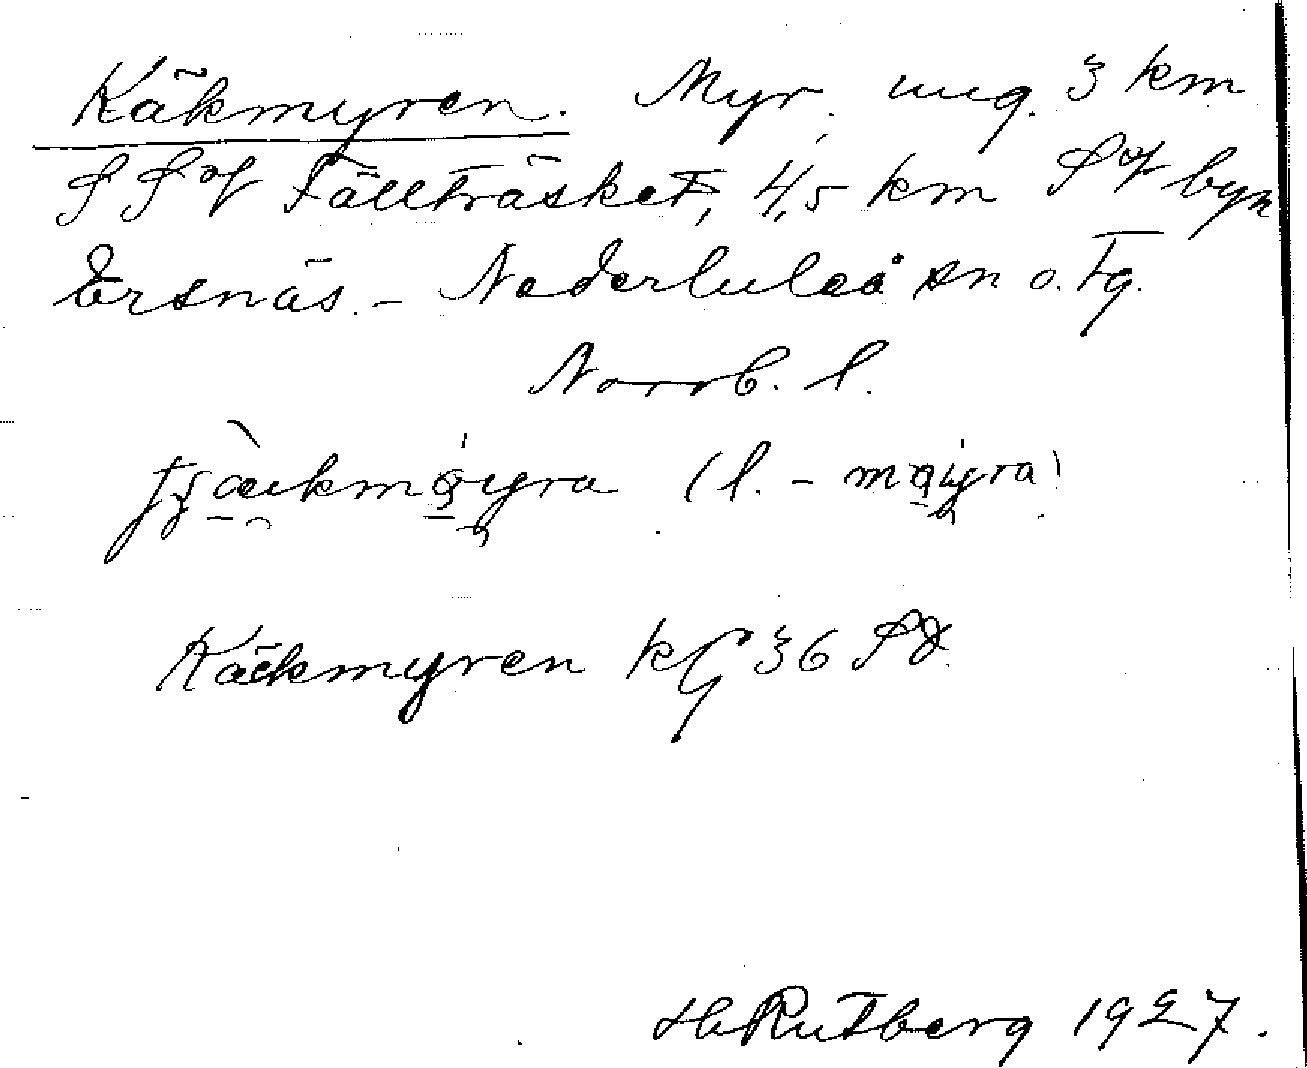 Käkmyren. Myr, ung. 3 km
S S of Fällträsket, 4,5 km S of byn
Ersnäs. - Nederluleå sn o. tg.
Norrb. l.
(l. -
Käckmyren kG 36 SO
H. Rutberg 1927.